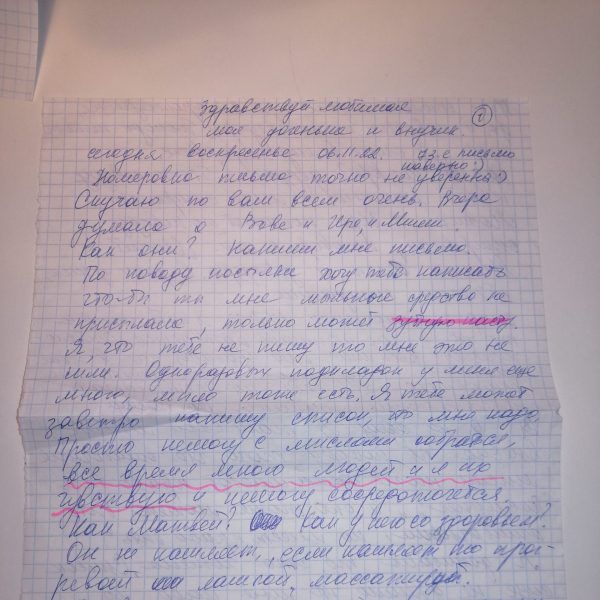 Здравствуй любимая ①
моя доченька и внучик.
сегодня воскресенье 06.11.22. 73-е письмо
наверно :)
Номеровка письма точно не уверенна :)
Скучаю по вам всем очень. Вчера
думала о Вове и Ире, и Миши.
Как они? Напиши мне письмо.
По поводу посылки хочу тебе написать
что-бы ты мне мыльные средство не
присылала, только может зубную пасту.
Я, что тебе не пишу то мне это не
шли. Одноразовых подкладок у меня еще
много, мыло тоже есть. Я тебе может
завтро напишу список, что мне надо.
Просто немогу с мыслями собратся,
все время много людей и я их
чувствую и немогу сосредоточется.
Как Матвей? Как у него со здоровьем?
Он не кашляет, если кашляет то прог-
ревай лампой, массажируй.